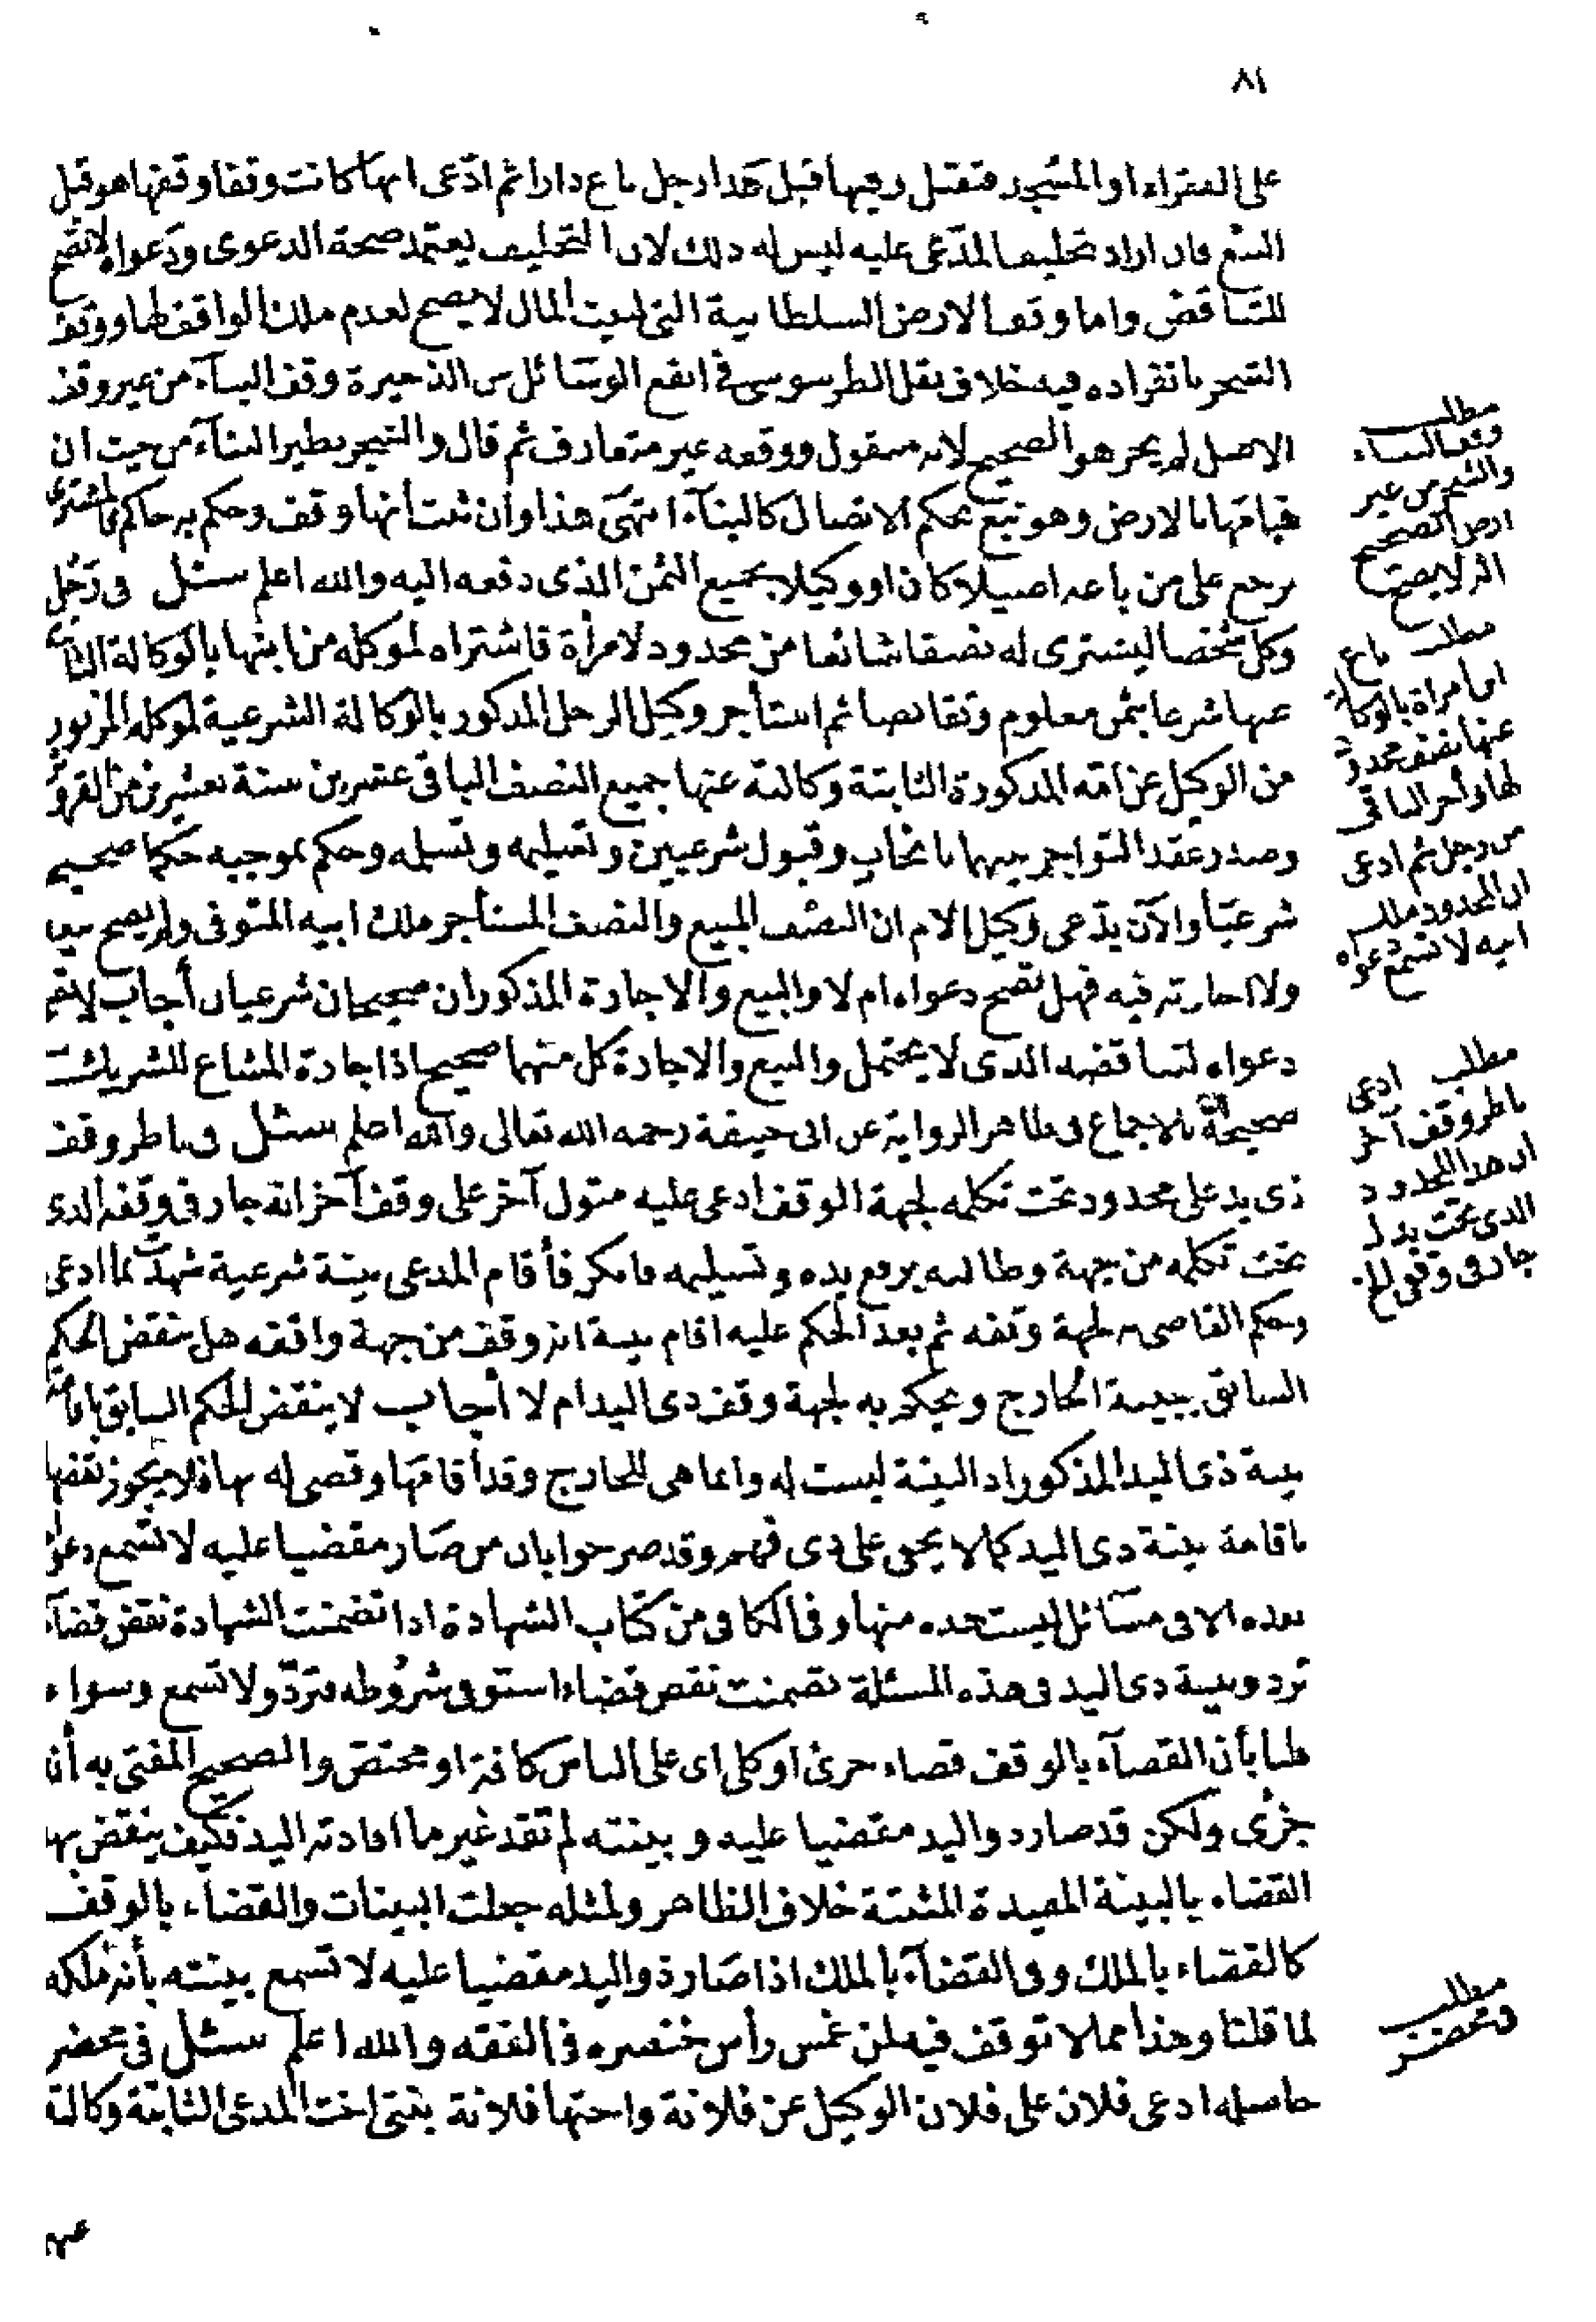 ٨١
على الفقراء او المسجد فتقبل وفيها قبل هذا رجل باع دارا ثم ادّعى انها كانت وقفا وقفها هو قبل
البيع فان اراد تحليف المدّعى عليه ليس له ذلك لان التحليف يعتمد صحة الدعوى ودعواه لا تصح
للتناقض واما وقف الارض السلطانية التى لبيت المال لا يصح لعدم ملك الواقف لها ووقف
الشجر بانفراده فيه خلاف نقل الطرسوسى فى انفع الوسائل من الذخيرة وقف البناء من غير وقف
الاصل لم يجز هو الصحيح لانه منقول ووقفه غير متعارف ثم قال والشجر نظير البناء من حيث ان
قيامها بالارض وهو تبع بحكم الاتصال كالبناء انتهى هذا وان ثبت انها وقف وحكم به حاكم فالمشترى
يرجع على من باعه اصيلا كان او وكيلا بجميع الثمن الذى دفعه اليه والله اعلم سئل فى رجل
وكل شخصا ليشترى له نصفا شائعا من محدود لامرأة فاشتراه لموكله من ابنها بالوكالة الثابتة
عنها شرعا بثمن معلوم وتقابضا ثم استأجر وكيل الرجل المذكور بالوكالة الشرعية لموكله المزبور
من الوكيل عن امه المذكورة الثابتة وكالته عنها جميع النصف الباقى عشرين سنة بعشرين من القروش
وصدر عقد التواجر بينهما بايجاب وقبول شرعيين وتسليمه وتسلمه وحكم بموجبه حكما صحيحا
شرعيا والآن يدّعى وكيل الام ان النصف المبيع والنصف المستأجر ملك ابيه المتوفى ولم يصح بيعا
ولا اجارته فيه فهل تصح دعواه ام لا والبيع والاجارة المذكوران صحيحان شرعيان أجاب لا تصح
دعواه لتناقضه الذى لا يحتمل والبيع والاجارة كل منهما صحيح اذا جارة المشاع للشريك
صحيحة بالاجماع فى ظاهر الرواية عن ابى حنيفة رحمه الله تعالى والله اعلم سئل فى ناظر وقف
ذى يد على محدود تحت تكلمه لجهة الوقف ادعى عليه متول آخر على وقف آخر انه جار فى وقفه الذى
تحت تكلمه من جهة وطالبه برفع يده وتسليمه فانكر فأقام المدعى بينة شرعية شهدت بما ادعى
وحكم القاضى به لجهة وقفه ثم بعد الحكم عليه اقام بينة انه وقف من جهة واقفه هل ينقض الحكم
السابق ببينة الخارج ويحكم به لجهة وقف ذى اليد ام لا أجاب لا ينقض الحكم السابق باقامة
بينة ذى اليد المذكور اذ البينة ليست له وانما هى للخارج وقد أقامها وقضى له بها فلا يجوز نقضها
باقامة بينة ذى اليد كما لا يخفى على ذى فهم وقد صرحوا بان من صار مقضيا عليه لا تسمع دعواه
بعده الا فى مسائل ليست هذه منها وفى الكافى من كتاب الشهادة اذا تضمنت الشهادة نقض قضاء
ترد وبينة ذى اليد فى هذه المسئلة تضمنت نقض قضاء استوفى شروطه فترد ولا تسمع وسواء
قلنا بأن القضاء بالوقف قضاء جزئ او كلى اى على الناس كافة او مختص والصحيح المفتى به أن
جزئى ولكن قد صار ذو اليد مقضيا عليه وبينته لم تفد غير ما افادته اليد فكيف ينقض بها
القضاء بالبينة المفيدة المثبتة خلاف الظاهر ولمثله جعلت البينات والقضاء بالوقف
كالقضاء بالملك وفى القضاء بالملك اذا صار ذو اليد مقضيا عليه لا تسمع بينته بأنه ملكه
لما قلنا وهذا مما لا توقف فيه لمن غمس رأس خنصره فى الفقه والله اعلم سئل فى محضر
حاصله ادعى فلان على فلان الوكيل عن فلانة واختها فلانة بنتى اخت المدعى الثابتة وكالته
عنهما
مطلب
وقف البناء
والشجر من غير
ارض الصحيح
انه لا يصح
مطلب باع
ابن امراة بالوكالة
عنها نصف محدود
لها وأجر الباقى
من رجل ثم ادعى
ان المحدود ملك
ابيه لا تسمع دعواه
مطلب ادعى
ناظر وقف آخر
ان هذا المحدود
الذى تحت يدك
جار فى وقفى الخ
مطلب
فى محضر